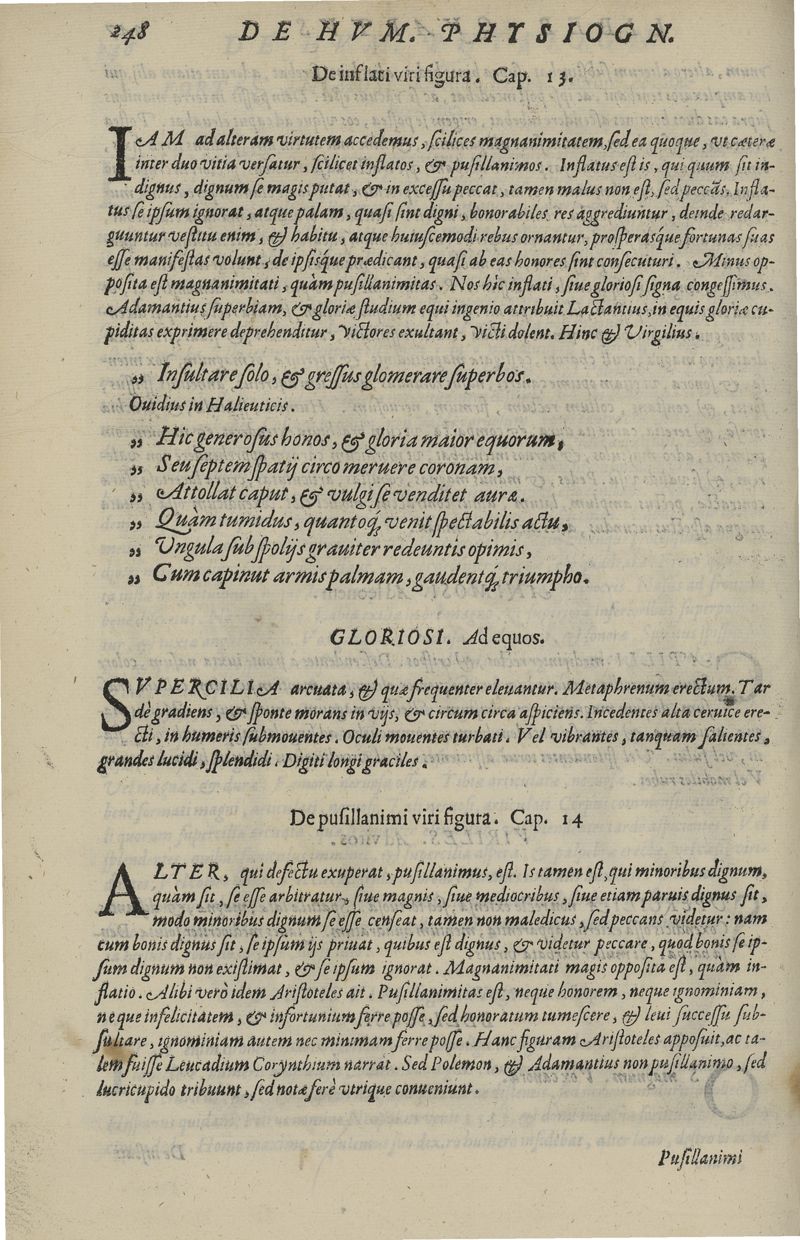 248 DE HVM. PHYSIOGN.
De inflati viri figura. Cap. 13.
IAM ad alteram virtutem accedemus, scilices magnanimitatem, sed ea quoque, vt cæteræ
inter duo vitia versatur, scilicet inflatos, & pusillanimos. Inflatus est is, qui quum sit in-
dignus, dignum se magis putat, & in excessu peccat, tamen malus non est, sed peccãs. Infla-
tus se ipsum ignorat, atque palam, quasi sint digni, bonorabiles res aggrediuntur, deinde redar-
guuntur vestitu enim, & habitu, atque huiuscemodi rebus ornantur, prosperasque fortunas suas
esse manifestas volunt, de ipsisque prædicant, quasi ab eas honores sint consecuturi. Minus op-
posita est magnanimitati, quàm pusillanimitas. Nos hìc inflati, siue gloriosi signa congessimus.
Adamantius superbiam, & gloriæ studium equi ingenio attribuit Lactantius, in equis gloriæ cu-
piditas exprimere deprehenditur, victores exultant, victi dolent. Hinc & Virgilius.
„ Insultare solo, & gressus glomerare superbos.
Ouidius in Halieuticis.
„ Hic generosus honos, & gloria maior equorum,
„ Seu septem spatij circo meruere coronam,
„ Attollat caput, & vulgi se venditet auræ.
„ Quàm tumidus, quantoq́; venit spectabilis actu,
„ Ungula sub spolijs grauiter redeuntis opimis,
„ Cum capinut armis palmam, gaudentq́; triumpho.
GLORIOSI. Ad equos.
SVPERCILIA arcuata, & quæ frequenter eleuantur. Metaphrenum erectum. Tar
dè gradiens, & sponte morans in vijs, & circum circa aspiciens. Incedentes alta ceruice ere-
cti, in humeris submouentes. Oculi mouentes turbati. Vel vibrantes, tanquam salientes,
grandes lucidi, splendidi. Digiti longi graciles.
De pusillanimi viri figura. Cap. 14
ALTER, qui defectu exuperat, pusillanimus, est. Is tamen est, qui minoribus dignum,
quàm sit, se esse arbitratur, siue magnis, siue mediocribus, siue etiam paruis dignus sit,
modo minoribus dignum se esse censeat, tamen non maledicus, sed peccans videtur: nam
cum bonis dignus sit, se ipsum ijs priuat, quibus est dignus, & videtur peccare, quod bonis se ip-
sum dignum non existimat, & se ipsum ignorat. Magnanimitati magis opposita est, quàm in-
flatio. Alibi verò idem Aristoteles ait. Pusillanimitas est, neque honorem, neque ignominiam,
neque infelicitatem, & infortunium ferre posse, sed honoratum tumescere, & leui successu sub-
sultare, ignominiam autem nec minimam ferre posse. Hanc figuram Aristoteles apposuit, ac ta-
lem fuisse Leucadium Corynthium narrat. Sed Polemon, & Adamantius non pusillanimo, sed
lucricupido tribuunt, sed notæ ferè vtrique conueniunt.
Pusillanimi